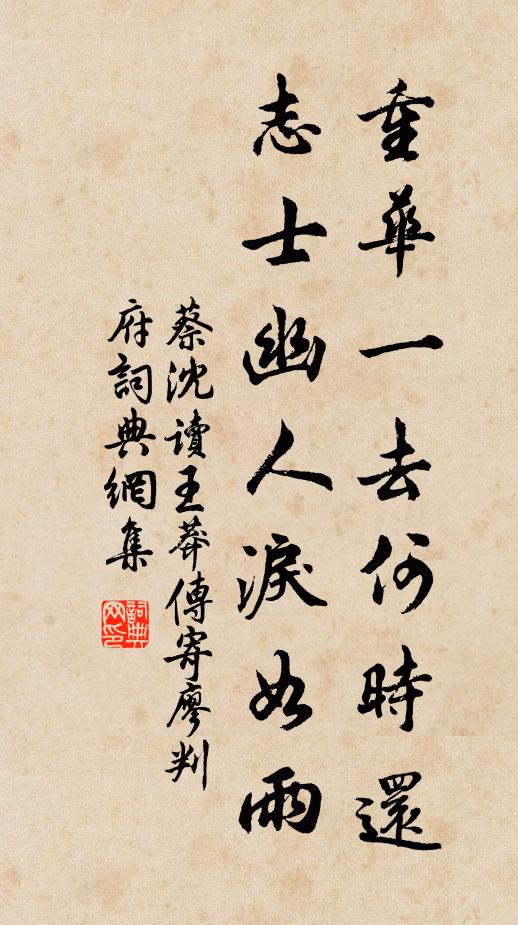 重華一去何時還
志士幽人淚如雨
蔡沈讀王莽傳寄廖判
府詞典網集
詞典網印